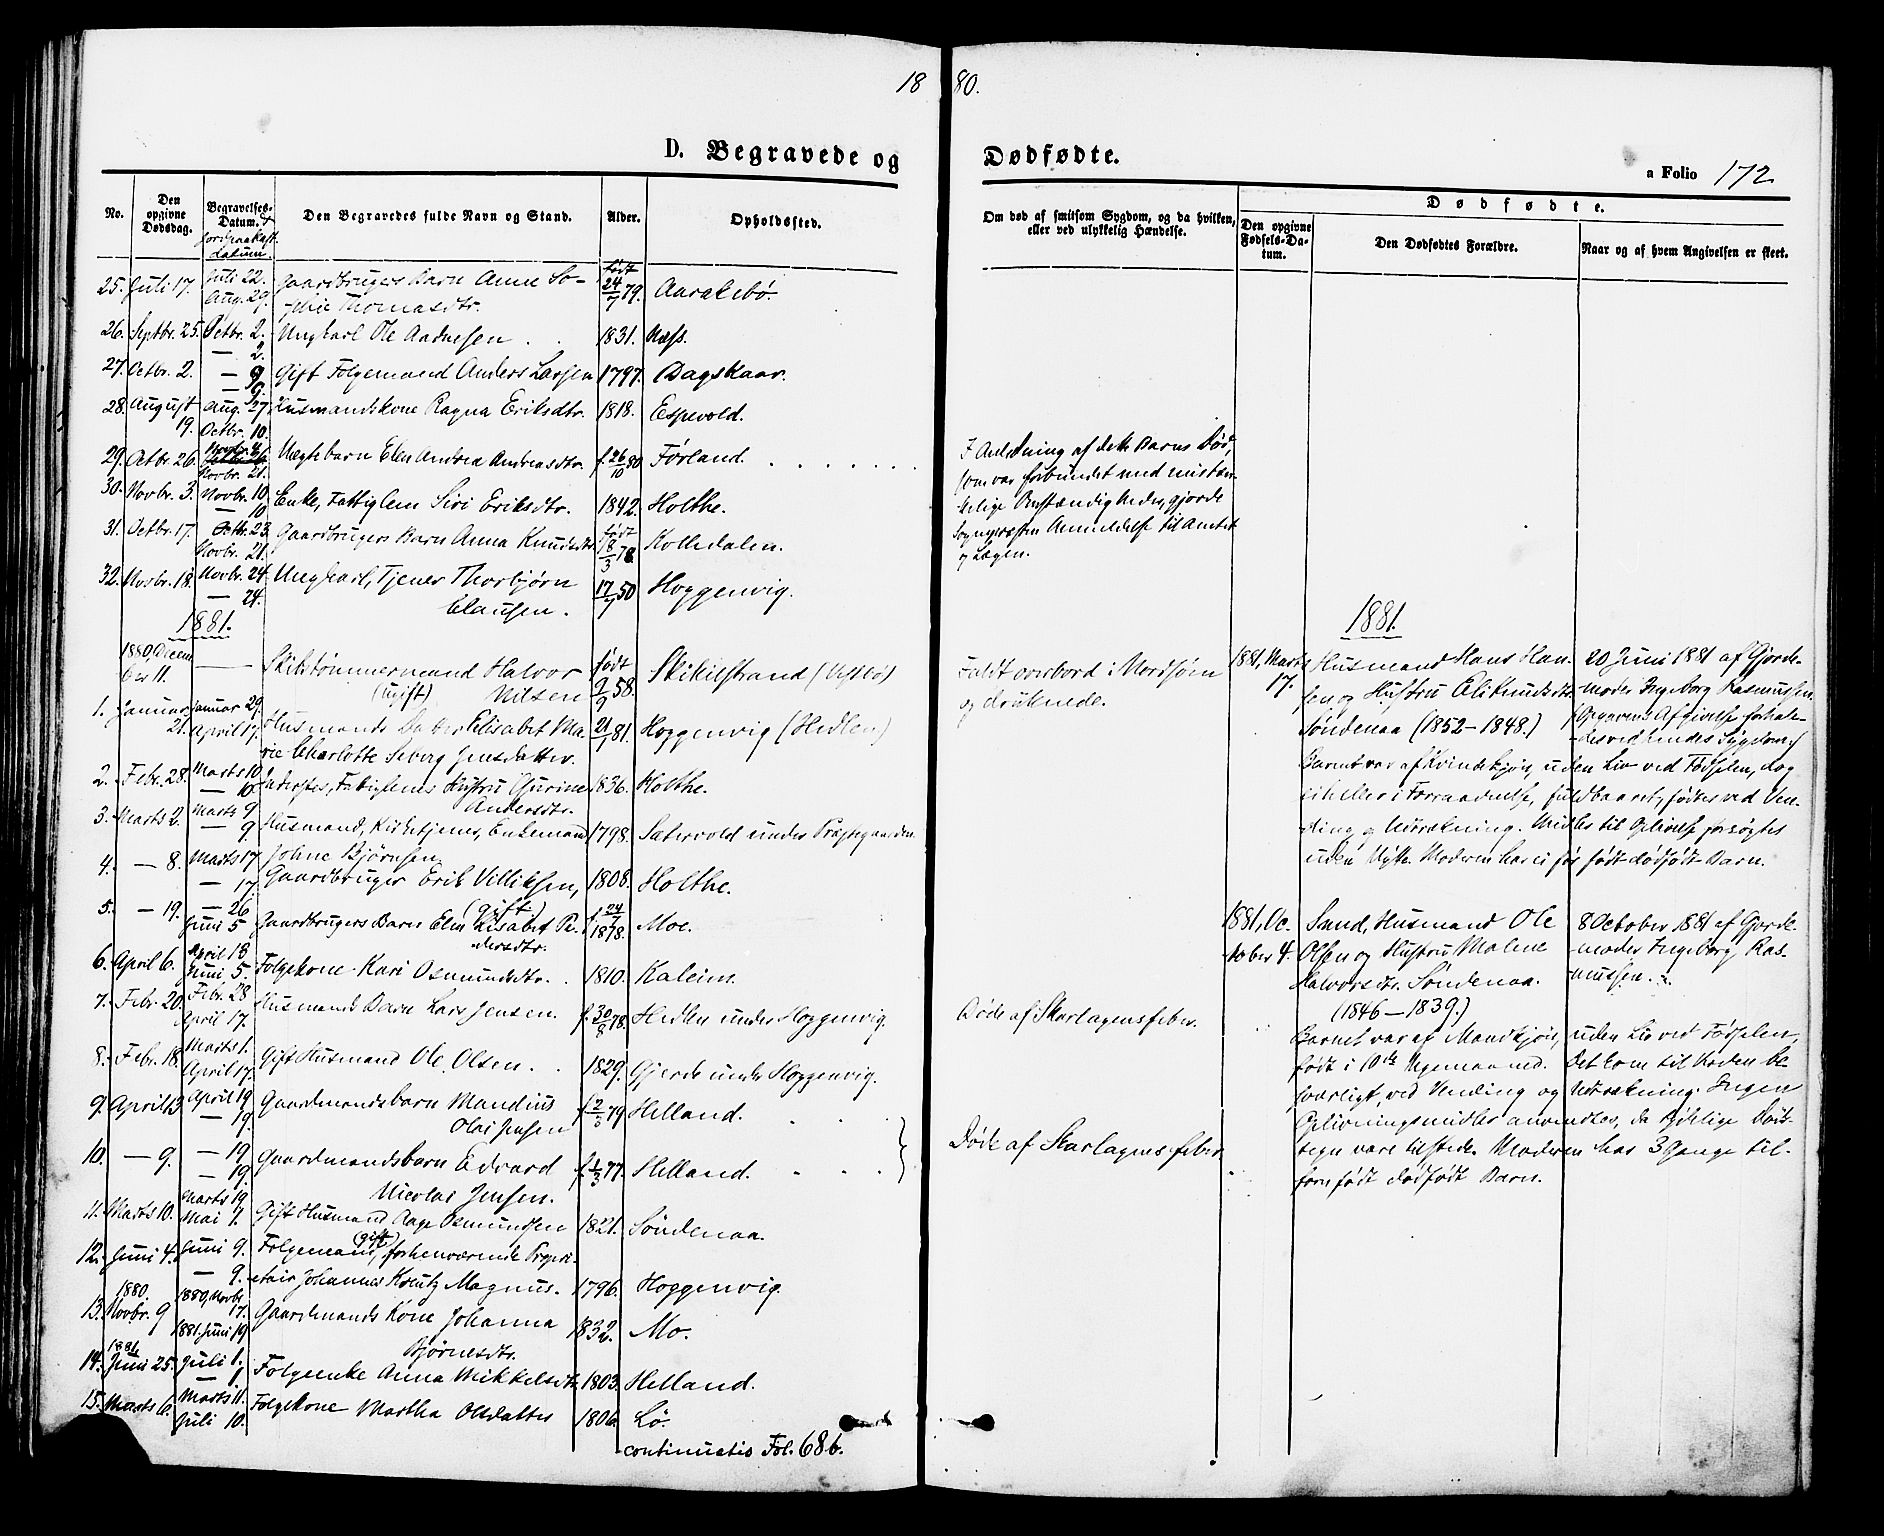 18 80.
D. Begravede og Dødfødte.
a Folio 172
No.
Den opgivne Dødsdag.
Begravelses-Datum. & Jordpaakast. datum.
Den Begravedes fulde Navn og Stand.
Alder.
Opholdssted.
Om død af smitsom Sygdom, og da hvilken, eller ved ulykkelig Hændelse.
Dødfødte.
Den opgivne Fødsels-Datum.
Den Dødfødtes Forældre.
Naar og af hvem Angivelsen er skeet.
25. Juli 17. Juli 22. Gaardbrugers Barn Anne So- født 24/7 79. Aarekebø.
Aug. 29. phie Thomasdtr.
26. Septbr. 25. Octbr. 2. Ungkarl Ole Aadnesen 1831. Næss.
— 2.
27. Octbr. 2. — 9. Gift Folgemand Anders Larsen 1797. Dagskaar.
— 9.
28. August 19. Aug. 27. Husmandskone Ragna Eriksdtr. 1818. Espevold.
Octbr. 10.
29. Octbr. 26. Novbr. 4. Uægte barn Elen Andrea Andreasdtr. f. 26/10 80 Førland.
Novbr. 21.
30. Novbr. 3. Novbr. 10. Enke, Fattiglem Siri Eriksdtr. 1842. Holthe.
— 10
31. Octbr. 17. Octbr. 23. Gaardbrugers Barn Anna Knudsdtr. født 18/3 78. Kolledalen.
Novbr. 21.
32. Novbr. 18. Novbr. 24. Ungkarl, Tjener Thorbjørn 17/7 50 Hoggenvig.
— 24. Clausen.
I Anledning af dette Barns Død,
som var forbundet med mistæn-
kelige Omstændigheder, gjorde
Sognepræsten Anmeldelse til Amtet
og Lægen.
1881.
1880, Decem-
ber 11. — Skibstømmermand Halvor født 9/9 58. Skibilstrand
(Ugift) Nilsen
Faldt overbord i Nordsøen
og druknede.
1. Januar 21. Januar 29. Husmands Datter Elisabet Ma- 21/1 81. Hoggenvig (Hedlen)
April 17. rie Charlotte Seberg Jensdatter.
2. Febr. 28. Marts 10. Inderstes, Fattiglems Hustru Gurine 1836. Holthe.
— 10. Andersdtr.
3. Marts 2. Marts 9 Husmand, Kirketjener, Enkemand 1798. Sætervold under Præstegaarden.
— 9. Johne Bjørnsen
4. — 8. Marts 17 Gaardbruger Erik Villiksen, 1808. Holthe.
— 17. (gift)
5. — 19. — 26 Gaardbrugers Barn Elen Elisabet Pe- f. 24/7 1878. Moe.
Juni 5 dersdtr.
6. April 6. April 18 Folgekone Kari Osmundsdtr. 1810. Kaleim.
Juni 5.
7. Febr. 20. Febr. 28 Husmands Barn Lars Jensen. f. 30/8 78. Hedlen under Hoggenvig. Døde af Skarlagensfeber.
April 17.
8. Febr. 18. Marts 1. Gift Husmand Ole Olsen. 1829. Gjerde under Hoggenvig.
April 17.
9. April 13 April 19 Gaardmandsbarn Mandius f. 2/5 79 Helland.
— 19 Olai Jensen
10. — 9. — 19 Gaardmandsbarn Edvard f. 1/3 77. Helland.
— 19. Nicolai Jensen.
Døde af Skarlagensfeber
11. Marts 10. Marts 19 Gift Husmand Aage Osmundsen 1821. Søndenaa.
Mai 7.
12. Juni 4. Juni 9. Folgemand, (gift) forhenværende Propri-
— 9. etair Johannes Kreutz Magnus. 1796. Hoggenvig.
13. 1880. Novbr. 9 1880, Novbr. 17. Gaardmands Kone Johanna 1832. Mo.
1881. Juni 19 Bjørnesdtr.
14. 1881 Juni 25. Juli 1. Folgeenke Anna Mikkelsdtr. 1803. Helland.
— 1
15. Marts 6. Marts 11. Folgekone Martha Olsdatter 1806. Lø.
Juli 10.
continuatio Fol. 686.
1881.
1881, Marts 17. Husmand Hans Han-
sen og Hustru Eli Knudsdtr.
Søndenaa (1852–1848.)
20 Juni 1881 af Gjorde-
moder Ingeborg Rasmussen.
(Opgavens Afgivelse forhale-
des ved hendes Sygdom.)
Barnet var af Kvindekjøn, uden Liv ved Fødselen, dog
ikke i Forraadnelse, fuldbaaret, fødtes ved Ven-
ding og Udtrækning. Midler til Oplivelse forsøgtes
uden Nytte. Moderen har ei før født dødfødt Barn.
1881, Oc-
tober 4. Sand, Husmand Ole
Olsen og Hustru Malene
Halvorsdtr. Søndenaa.
(1846–1839.)
8 October 1881 af Gjorde-
moder Ingeborg Ras-
mussen.
Barnet var af Mandkjøn, uden Liv ved Fødselen,
født i 10de Ugemaaned. Det kom til Verden be-
sværligt ved Vending og Udtrækning. Ingen
Oplivningsmidler anvendtes, da tydelige Døds-
tegn vare tilstede. Moderen har 3 Gange til-
forn født dødfødt Barn.